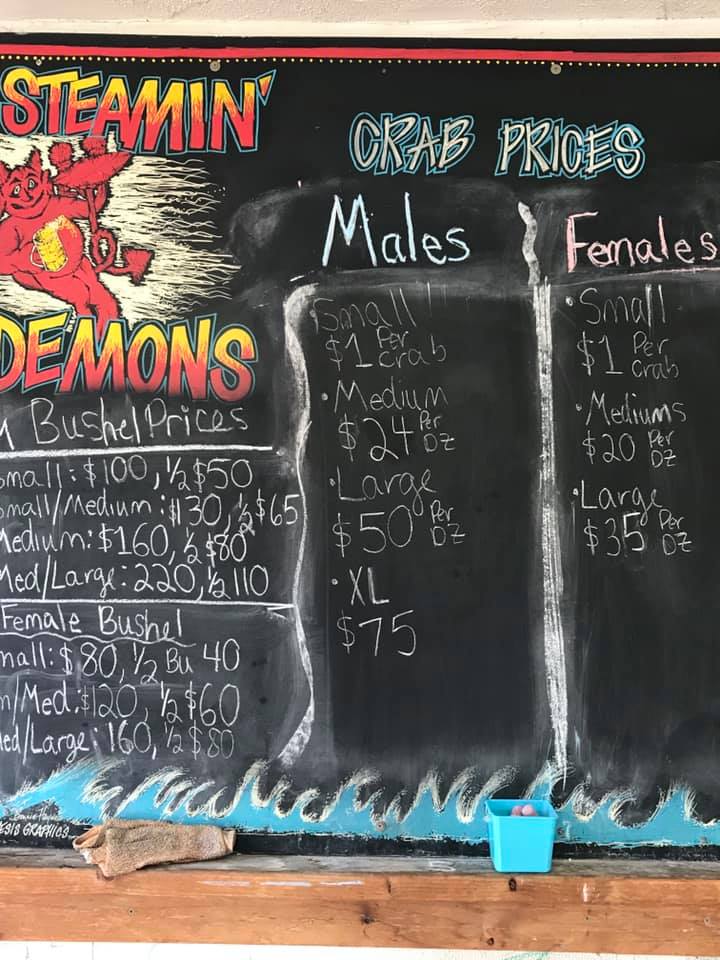 STEAMIN'
DEMONS
Bushel Prices
small: $100, ½ $50
small/Medium: $130, ½ $65
Medium: $160, ½ $80
Med/Large: 220, ½ 110
Female Bushel
mall: $80, ½ Bu 40
m/Med: $120, ½ $60
ed/Large: 160, ½ $80
ESIS GRAPHICS
CRAB PRICES
Males
Small
$1 Per
Crab
• Medium
$24 Per
DZ
• Large
$50 Per
DZ
• XL
$75
Females
• Small
$1 Per
Crab
• Mediums
$20 Per
DZ
• Large
$35 Per
DZ